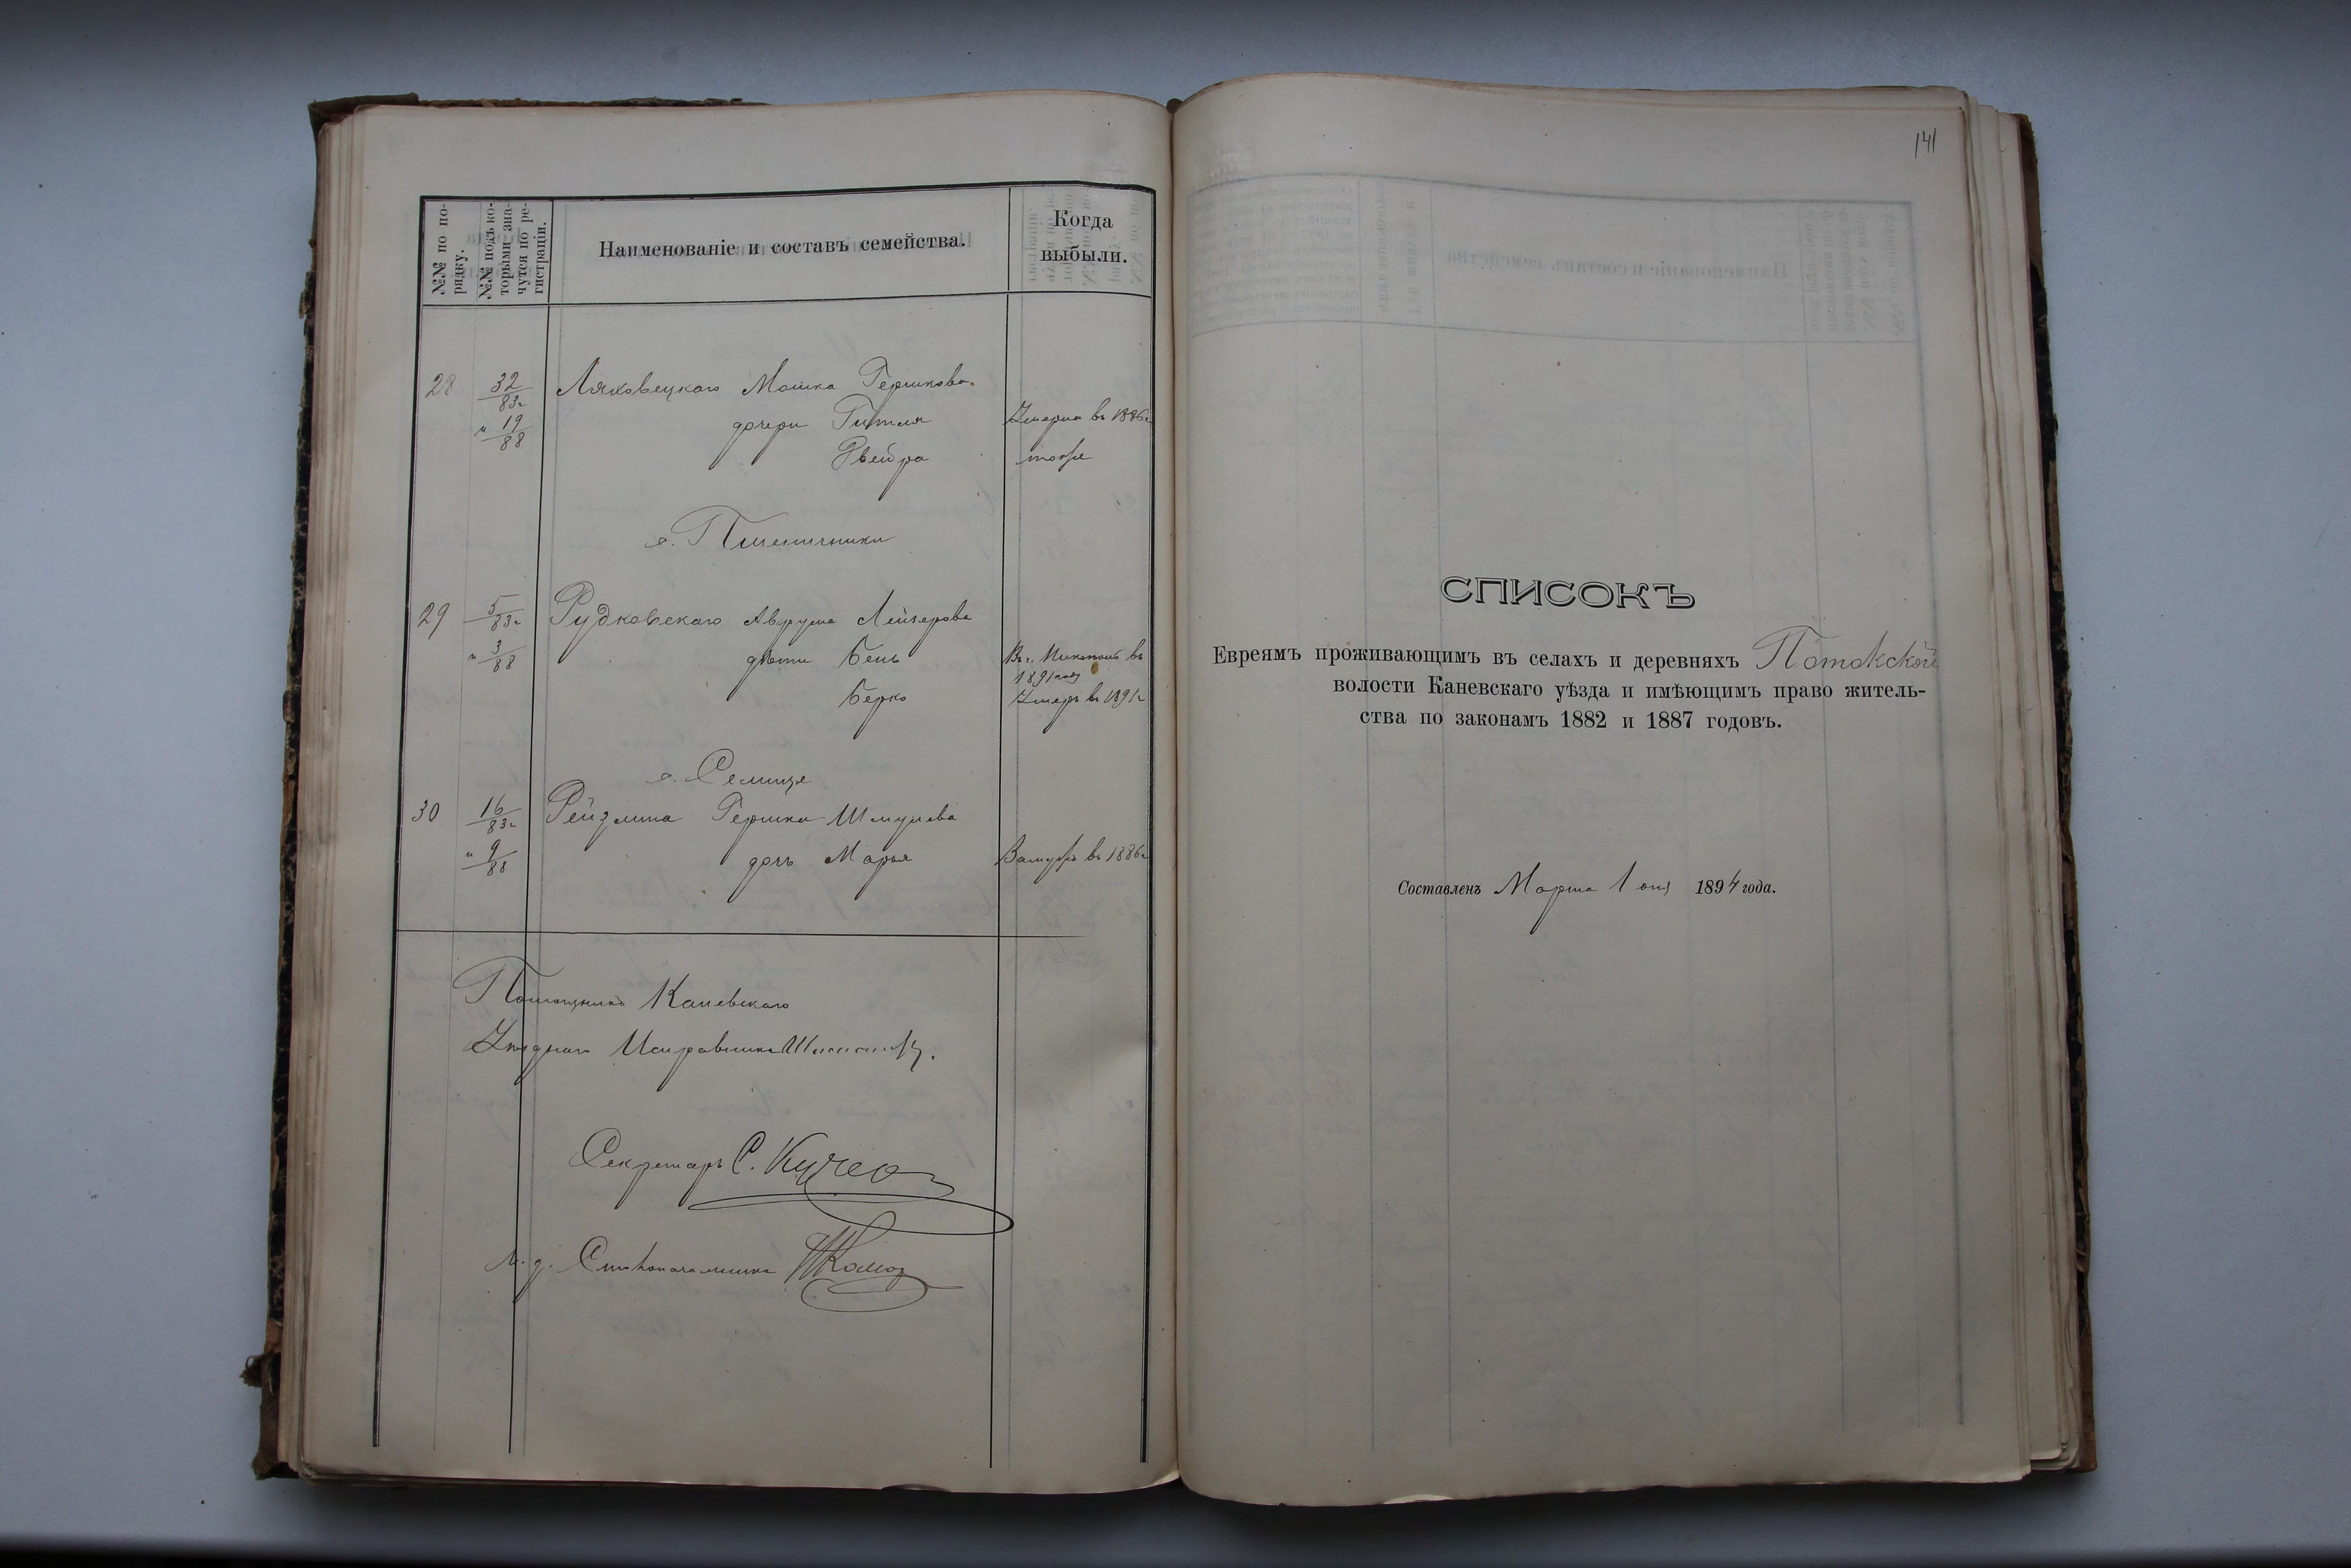 №№ по по-
рядку.
№№ подъ ко-
торыми зна-
чутся по ре-
гистраціи.
Наименованіе и составъ семейства.
Когда
выбыли.
28 32/83г Ляховецкаго Мошка Гершкова
и 19/88 дочери Гитля Умерла въ 1886г
Двейра тоже
с. Пшеничники
29 5/83г Рудковскаго Аврума Лейзерова
и 3/88 дѣти Бень Въ г. Никополь въ
1891 году
Берко Умеръ въ 1891г
с. Селище
30 16/83г Рейзлина Гершка Шмулева
и 9/88 дочь Марья Замужъ въ 1886г
Помощникъ Каневскаго
Уѣзднаго Исправника
Секретарь С.
И. д. Столоначальника
141
СПИСОКЪ
Евреямъ проживающимъ въ селахъ и деревняхъ Потокской
волости Каневскаго уѣзда и имѣющимъ право житель-
ства по законамъ 1882 и 1887 годовъ.
Составленъ Марта 1 дня 1894 года.